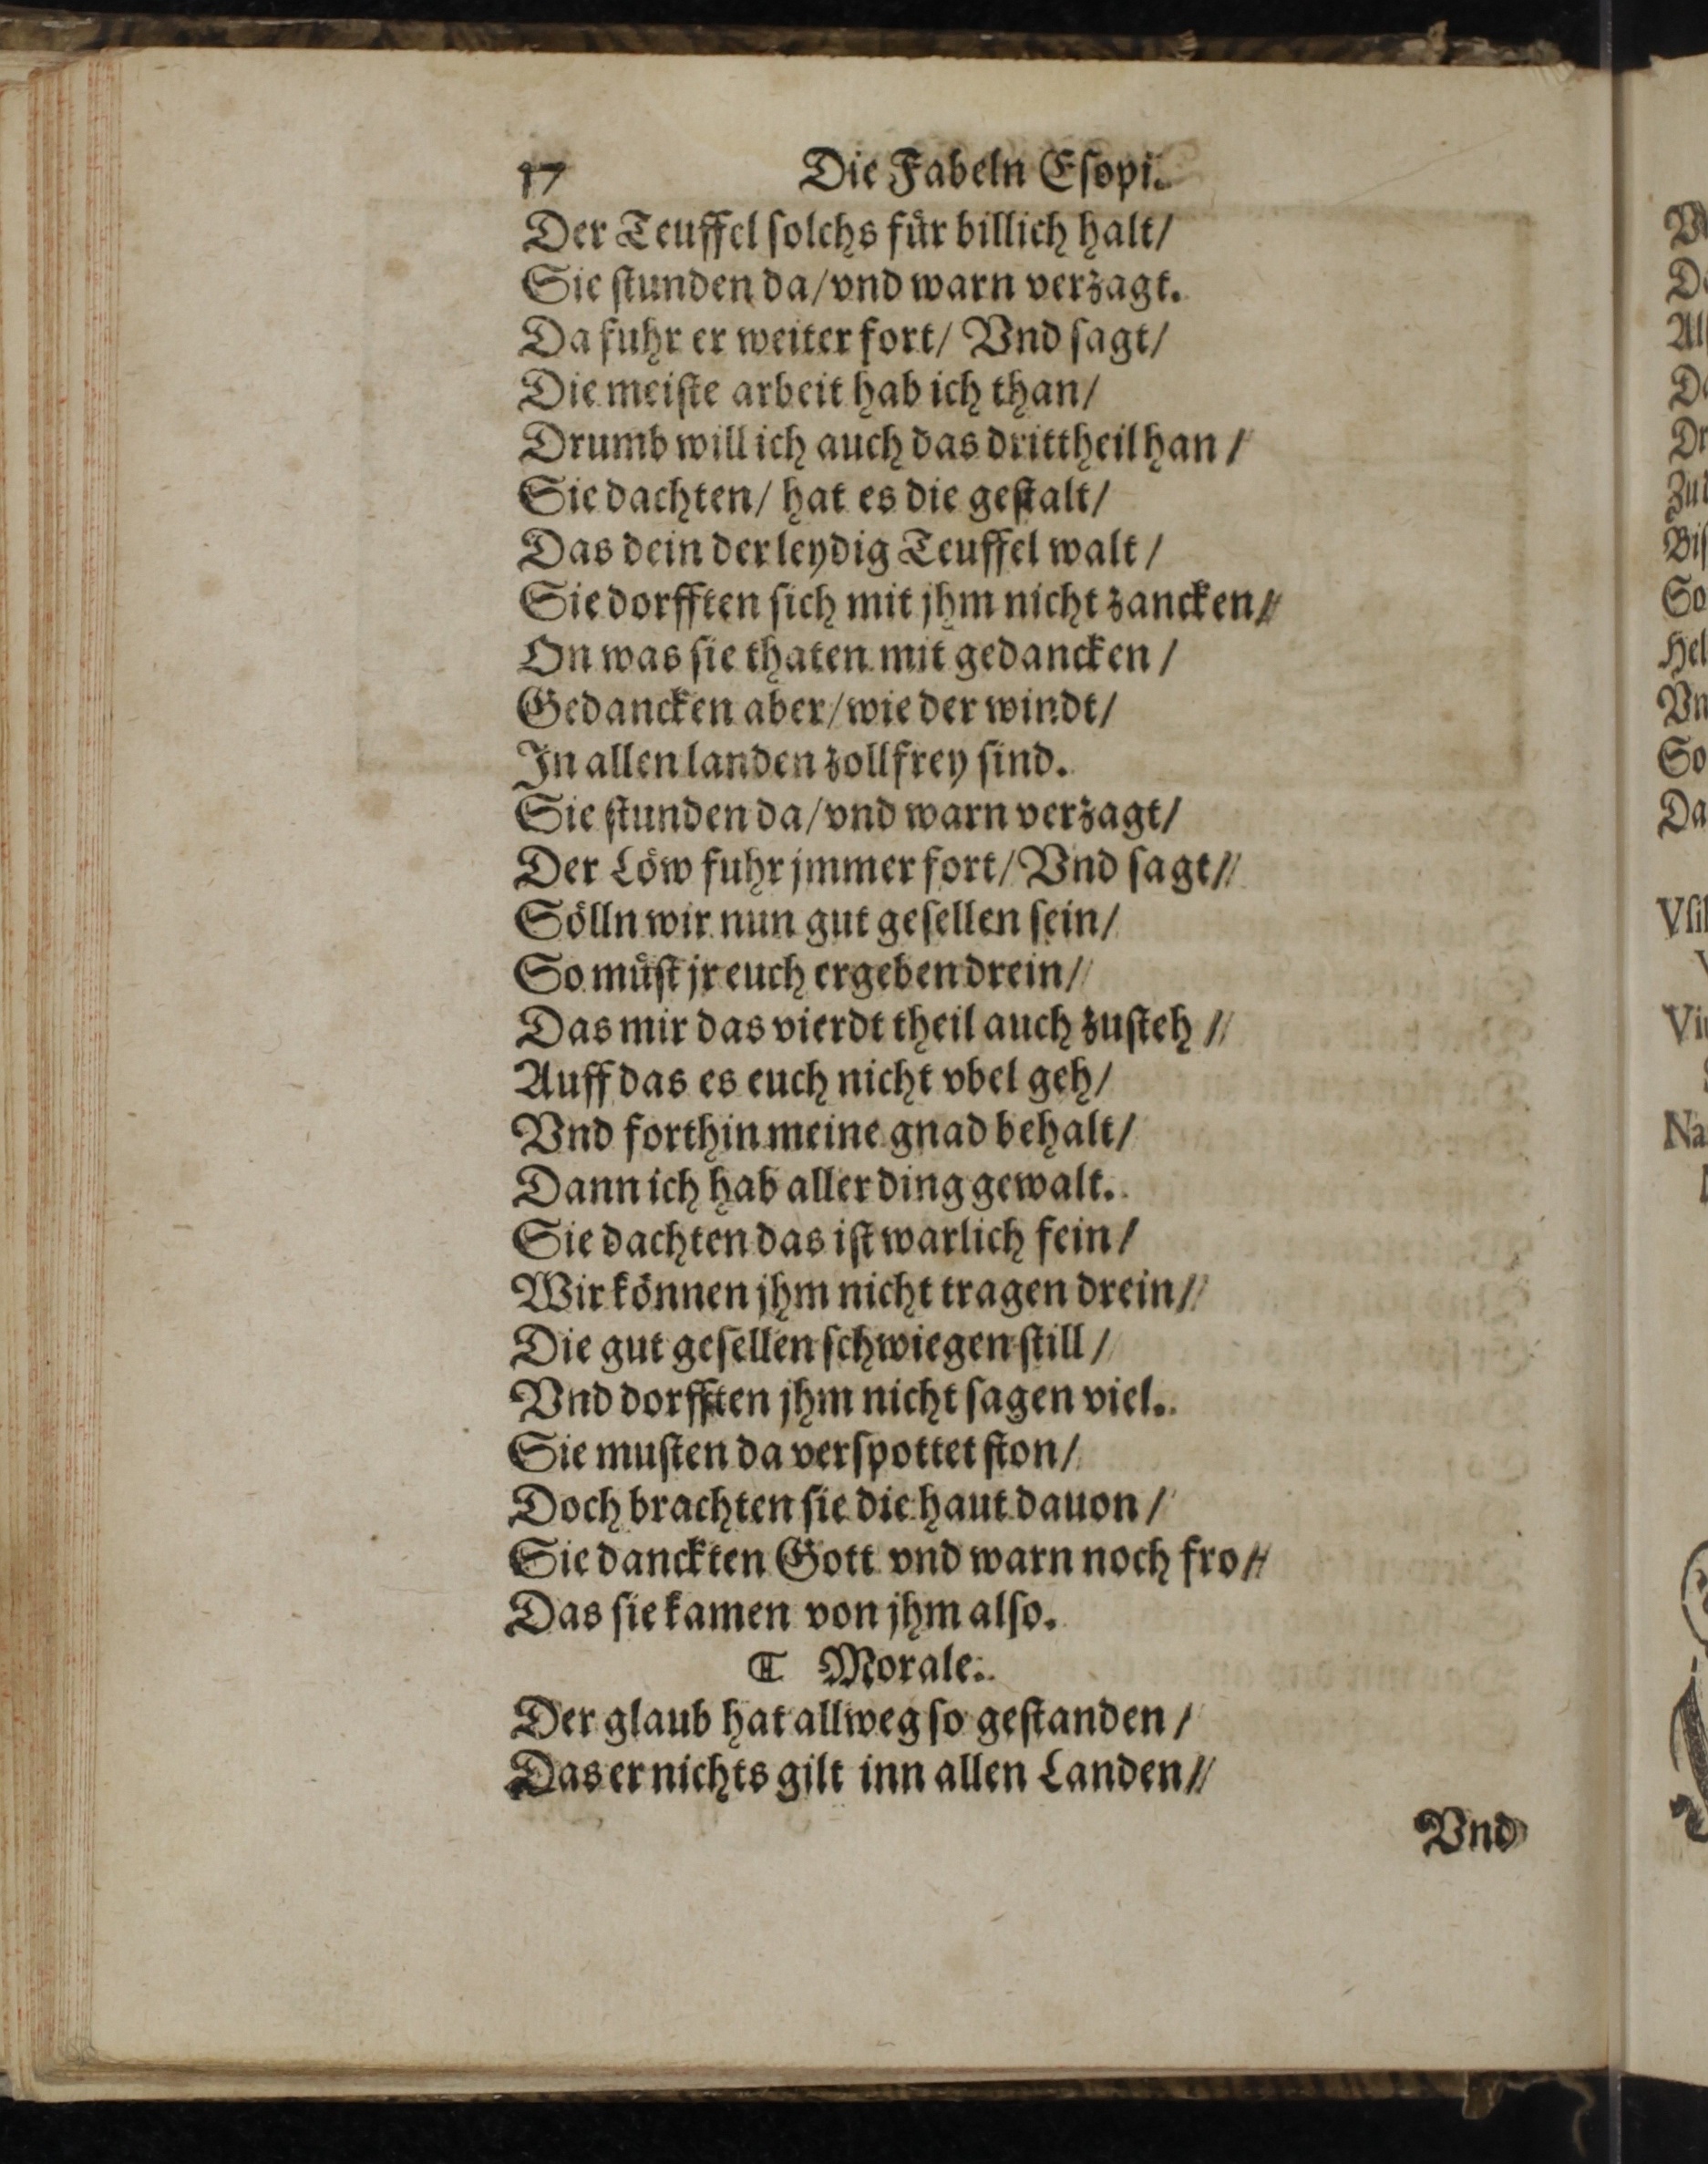 17 Die Fabeln Esopi.
Der Teuffel solchs für billich halt/
Sie stunden da/vnd warn verzagt.
Da fuhr er weiter fort/ Vnd sagt/
Die meiste arbeit hab ich than/
Drumb will ich auch das drittheil han/
Sie dachten/ hat es die gestalt/
Das dein der leydig Teuffel walt/
Sie dorfften sich mit jhm nicht zancken/
On was sie thaten mit gedancken/
Gedancken aber/wie der windt/
In allen landen zollfrey sind.
Sie stunden da/vnd warn verzagt/
Der Löw fuhr jmmer fort/Vnd sagt/
Sölln wir nun gut gesellen sein/
So müst jr euch ergeben drein/
Das mir das vierdt theil auch zusteh/
Auff das es euch nicht vbel geh/
Vnd forthin meine gnad behalt/
Dann ich hab aller ding gewalt.
Sie dachten das ist warlich fein/
Wir können jhm nicht tragen drein/
Die gut gesellen schwiegen still/
Vnd dorfften jhm nicht sagen viel.
Sie musten da verspottet ston/
Doch brachten sie die haut dauon/
Sie danckten Gott vnd warn noch fro/
Das sie kamen von jhm also.
Morale.
Der glaub hat allweg so gestanden/
Das er nichts gilt inn allen Landen/
Vnd